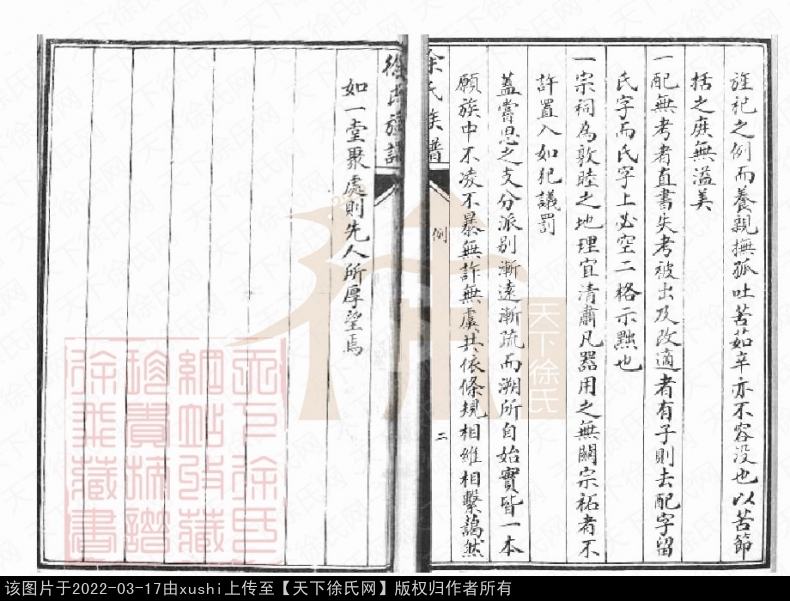 旌祀之例而養親撫孤吐苦茹辛亦不容没也以苦節
括之庶無溢美
一配無考者直書失考被出及改適者有子則去配字留
氏字而氏字上必空二格示黜也
一宗祠為敦睦之地理宜清肅凡器用之無關宗祏者不
許置入如犯議罰
蓋嘗思之支分派别漸遠漸疏而溯所自始實皆一本
願族中不凌不暴無詐無虞共依條規相維相繫藹然
余氏族譜
例
二
徐氏族譜
如一堂聚處則先人所厚望焉
天下徐氏
天下徐氏
網站收藏
珍貴族譜
徐飛藏書
该图片于2022-03-17由xushi上传至【天下徐氏网】版权归作者所有